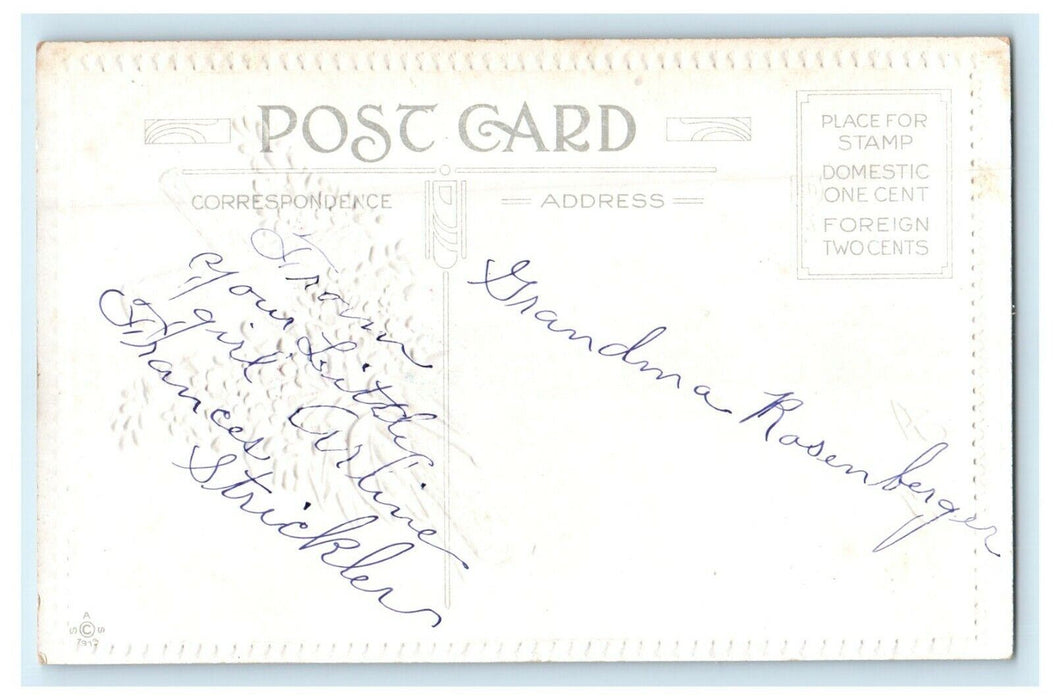 POST CARD
PLACE FOR
STAMP
DOMESTIC
ONE CENT
FOREIGN
TWO CENTS
CORRESPONDENCE
ADDRESS
From
your Little
girl Arline
Frances
Strickler
Grandma Rosenberger
A
S © S